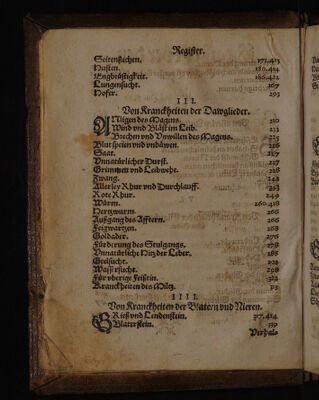 Register.
Seitenstichen. 177.413
Husten. 180.414
Engbrüstigkeit. 186.422
Lungensucht. 167
Hofer. 203
III.
Von Kranckheiten der Dawglieder.
ANligen des Magens. 210
Wind vnd Bläst im Leib. 213
Brechen vnd Vnwillen des Magens. 225
Blut speien vnd vndäwen. 226
Saat. 227
Vnnatürlicher Durst. 237
Grimmen vnd Leibwehe. 228
Zwang. 248
Allerley Rhur vnd Durchlauff. 253
Rote Rhur. 249
Würm. 260.418
Hertzwurm. 266
Außgang des Afftern. 266
Feigwartzen. 268
Goldader. 276
Fürderung des Stulgangs. 278
Vnnatürliche Hitz der Leber. 285
Geelsucht. 291
Wassersucht. 298
Für vberige Feißtin. 312
Kranckheiten des Miltz. 313
IIII.
Von Kranckheiten der Blatern vnd Nieren.
GRieß vnd Lendenstein. 317.424
Blaterstein. 339
Verhal-